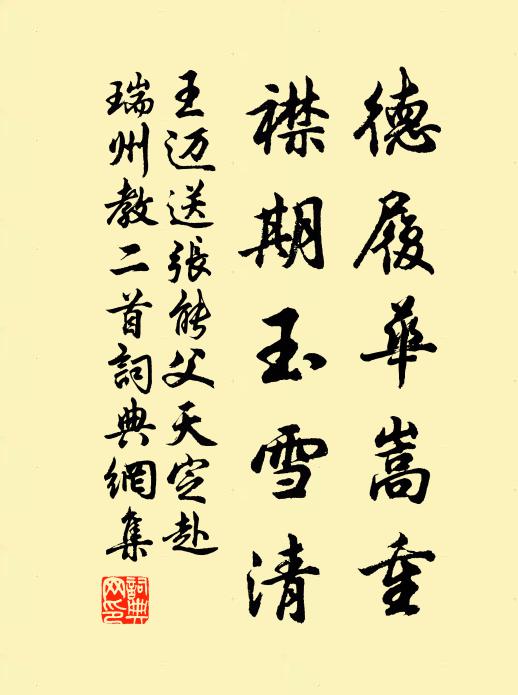 德履華嵩重
襟期玉雪清
王迈送張能父天定赴
瑞州教二首詞典網集
詞典
网印